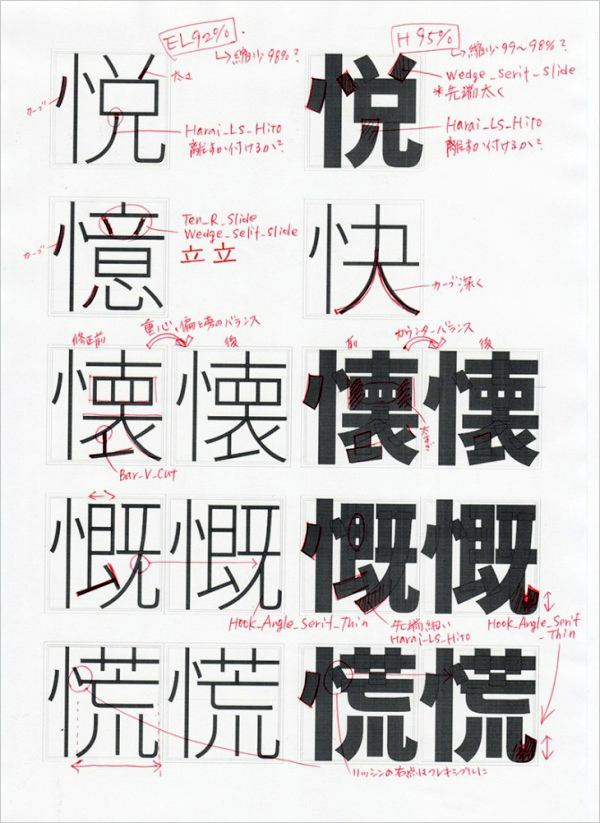 EL92%.
→縮小98%?
H 95%
→縮小99〜98%?
悦
太さ
カーブ
Harai_LS_Hito
離すか付けるか?
悦
Wedge_Serif_Slide
*先端太く
Harai_LS_Hito
離すか付けるか?
憶
カーブ
Ten_R_Slide
Wedge_Serif_Slide
立立
快
カーブ深く
重心、偏と旁のバランス
修正前
後
懐
懐
Bar_V_Cut
カウンターバランス
前
後
懐
懐
太すぎ
慨
慨
Hook_Angle_Serif_Thin
慨
慨
先端細い
Harai_LS_Hito
Hook_Angle_Serif
_Thin
慌
慌
慌
慌
リッシンの右点はフレキシブルに